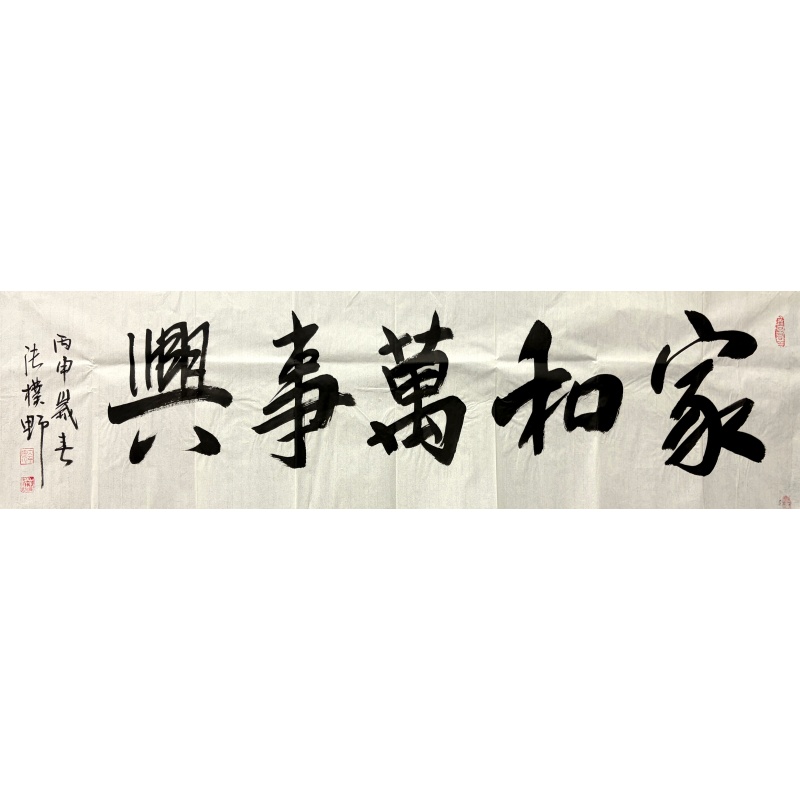 家和萬事興
丙申歲春
張樸野